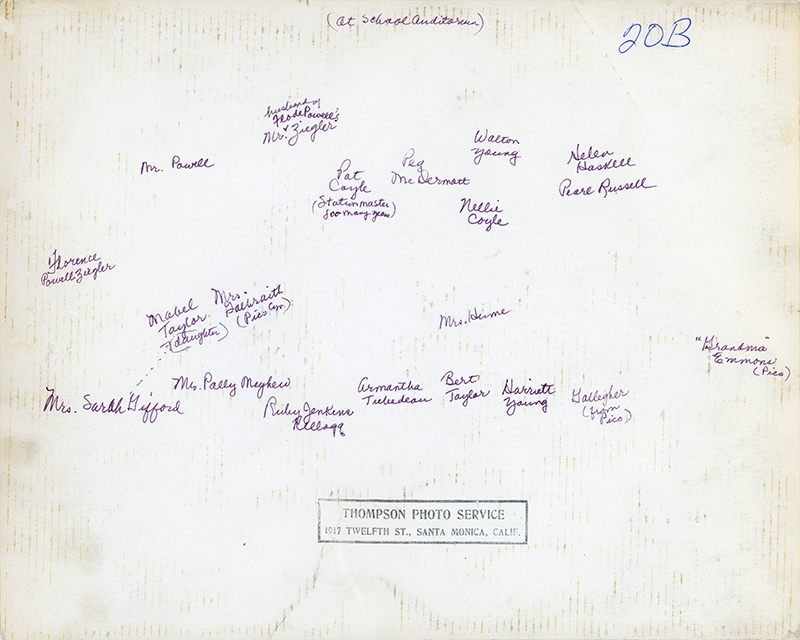 (at School Auditorium)
20B
husband of
Flo de Powell's
Mr. Ziegler
Mr. Powell
Pat
Coyle
(Stationmaster
soo many years)
Peg
McDermott
Walton
Young
Nellie
Coyle
Helen
Haskell
Pearl Russell
Florence
Powell Ziegler
Mabel
Taylor
(daughter)
Mrs.
Galbraith
(Pico Cyn.)
Mrs. Hume
"Grandma"
Emmons
(Pico)
Mrs. Sarah Gifford
Mrs. Pally Mayhew
Ruby Jenkins
Kellogg
Armantha
Tibedeau
Bert
Taylor
Harriett
Young
Gallegher
(from
Pico)
THOMPSON PHOTO SERVICE
1917 TWELFTH ST., SANTA MONICA, CALIF.